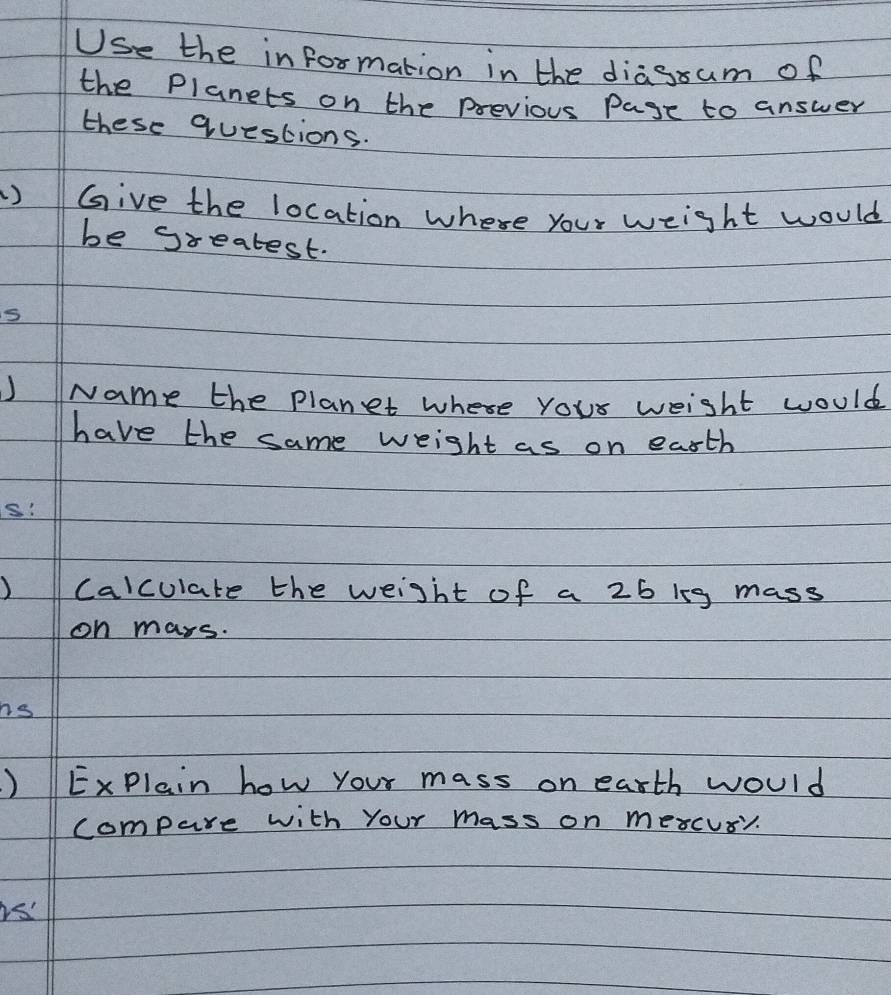 Use the information in the diagram of
the Planets on the previous Page to answer
these questions.
) Give the location where your weight would
be greatest.
s
) Name the planet where your weight would
have the same weight as on earth
s:
) Calculate the weight of a 26 kg mass
on mars.
ns
.) Explain how your mass on earth would
compare with your mass on mercury.
ns: